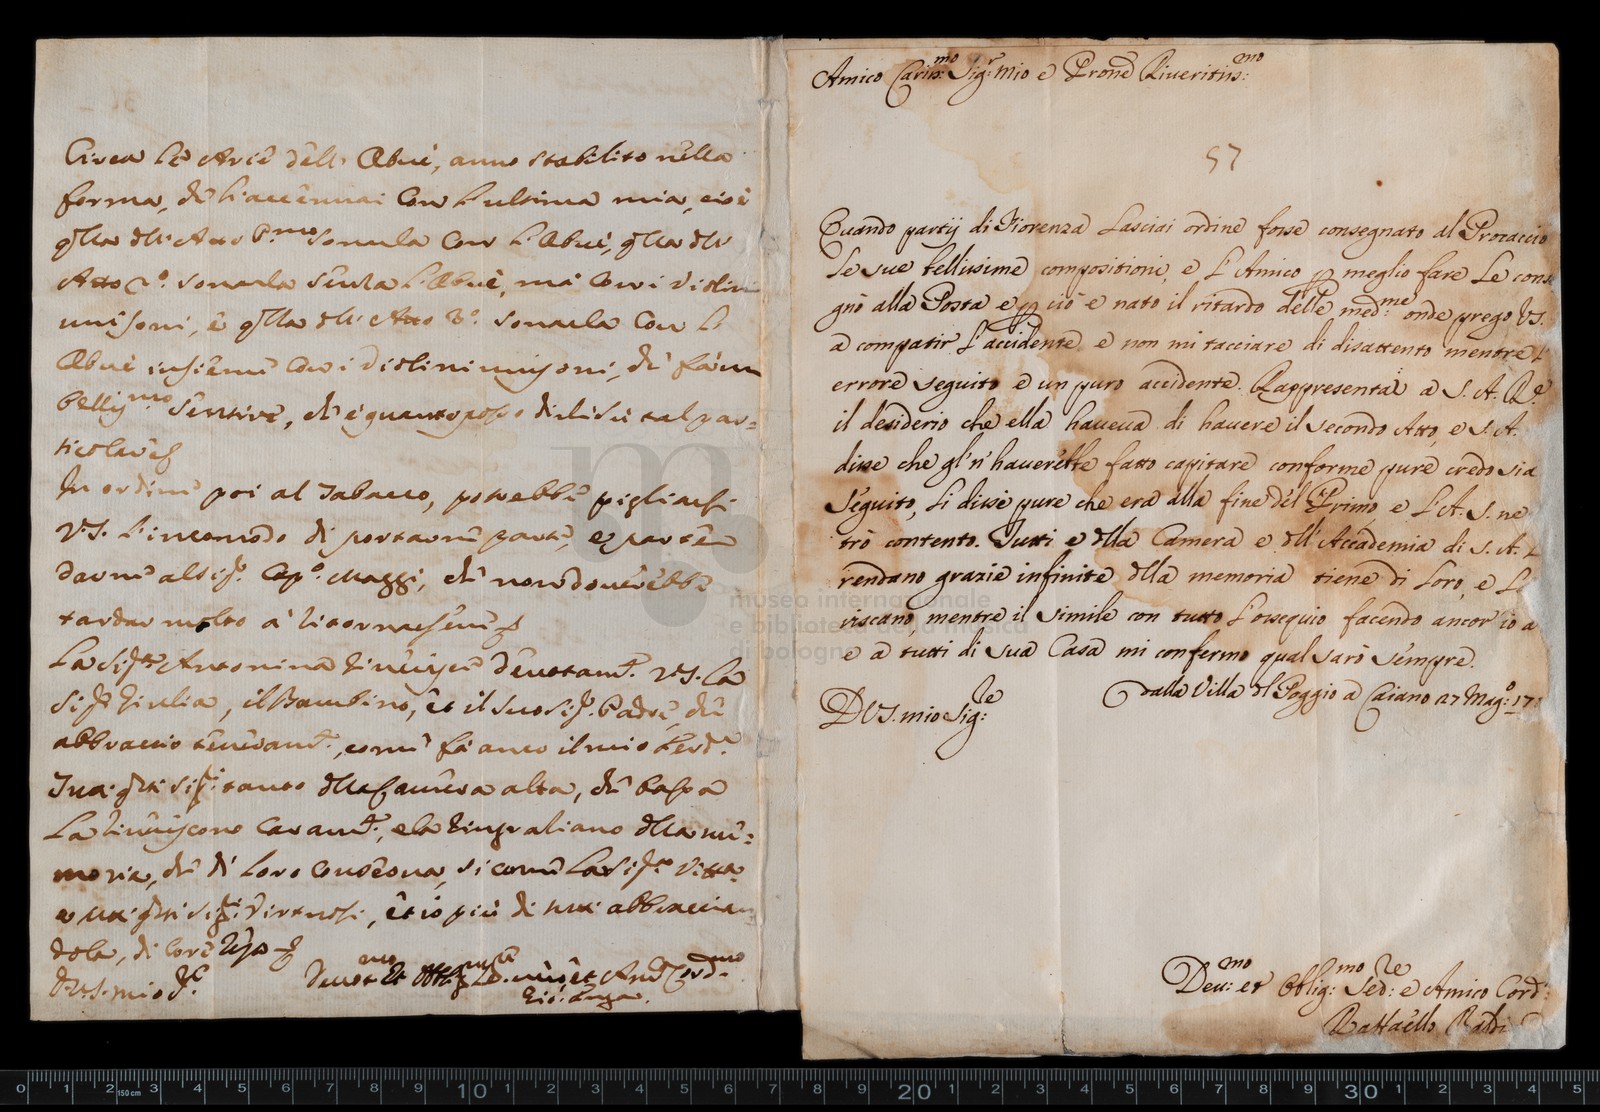 Circa le Arie dell' Obuè, anno stabilito nella
forma, che l'accennai con l'ultima mia, cioè
qlla dll' Atto P.mo sonarla con l'Obuè, qlla dll'
Atto 2.º sonarla senza l'Obuè, ma con i Violini
unisoni, e qlla dll' Atto 3.º sonarla con l'
Obuè insieme con i Violini unisoni, che fà un
belliss.mo sentire, ch'è quanto posso dirle in tal par=
ticolare
In ordine poi al Tabacco, potrebbe pigliarsi
V.S. l'incomodo di portarne parte, e parte
darne al Sig.r Cap.º Maggi, che non dovrebbe
tardar molto à ritornarsene
La Sig.ra Antonina riverisce devotam.te V.S. la
Sig.ra Giulia, il Bambino, et il suo Sig.r Padre, che
abbraccio teneram.te, come fà anco il mio Ferd.º
Tux: qsti Sig.ri tanto dlla Camera alta, che bassa
la riveriscono caram.te, e la ringraziano dlla me=
moria, che di loro conserva, si come la Sig.ra Vitta
e tux: qsti Sig.ri Virtuosi, et io più di tux: abbraccian
dola, di core resto
D V.S. mio Sig.re
Devot.mo et Obblig.mo Se.re vero et Am.co Cord.mo
Gio: Fuga.
Amico Cariss:mo Sig:r Mio e Prone Riveritiss:mo
57
Quando partij di Fiorenza lasciai ordine fosse consegnato al Procaccio
le sue bellissime compositioni, e l'Amico p meglio fare le conse
gnò alla Posta e p ciò è nato il ritardo delle med:me onde prego VS.
a compatir l'accidente e non mi tacciare di disattento mentre l'
errore seguito è un puro accidente. Rappresentai a S. A. R.e
il desiderio che ella haveva di havere il secondo Atto, e S. A.
disse che gl'n' haverebbe fatto capitare conforme pure credo sia
seguito, li dissi pure che era alla fine del Primo, e l'A. S. ne
trò contento. Tutti e dlla Camera e dll' Accademia di S. A. l
rendano grazie infinite dlla memoria tiene di loro, e l
viscano, mentre il simile con tutto l'ossequio facendo ancor io a
e a tutti di sua Casa mi confermo qual sarò sempre.
D VS. mio Sig:re
dalla Villa dl Poggio a Caiano 27 Mag:º 17
Dev:mo et Oblig:mo Se:re e Amico Cord:
Raffaello Baldi